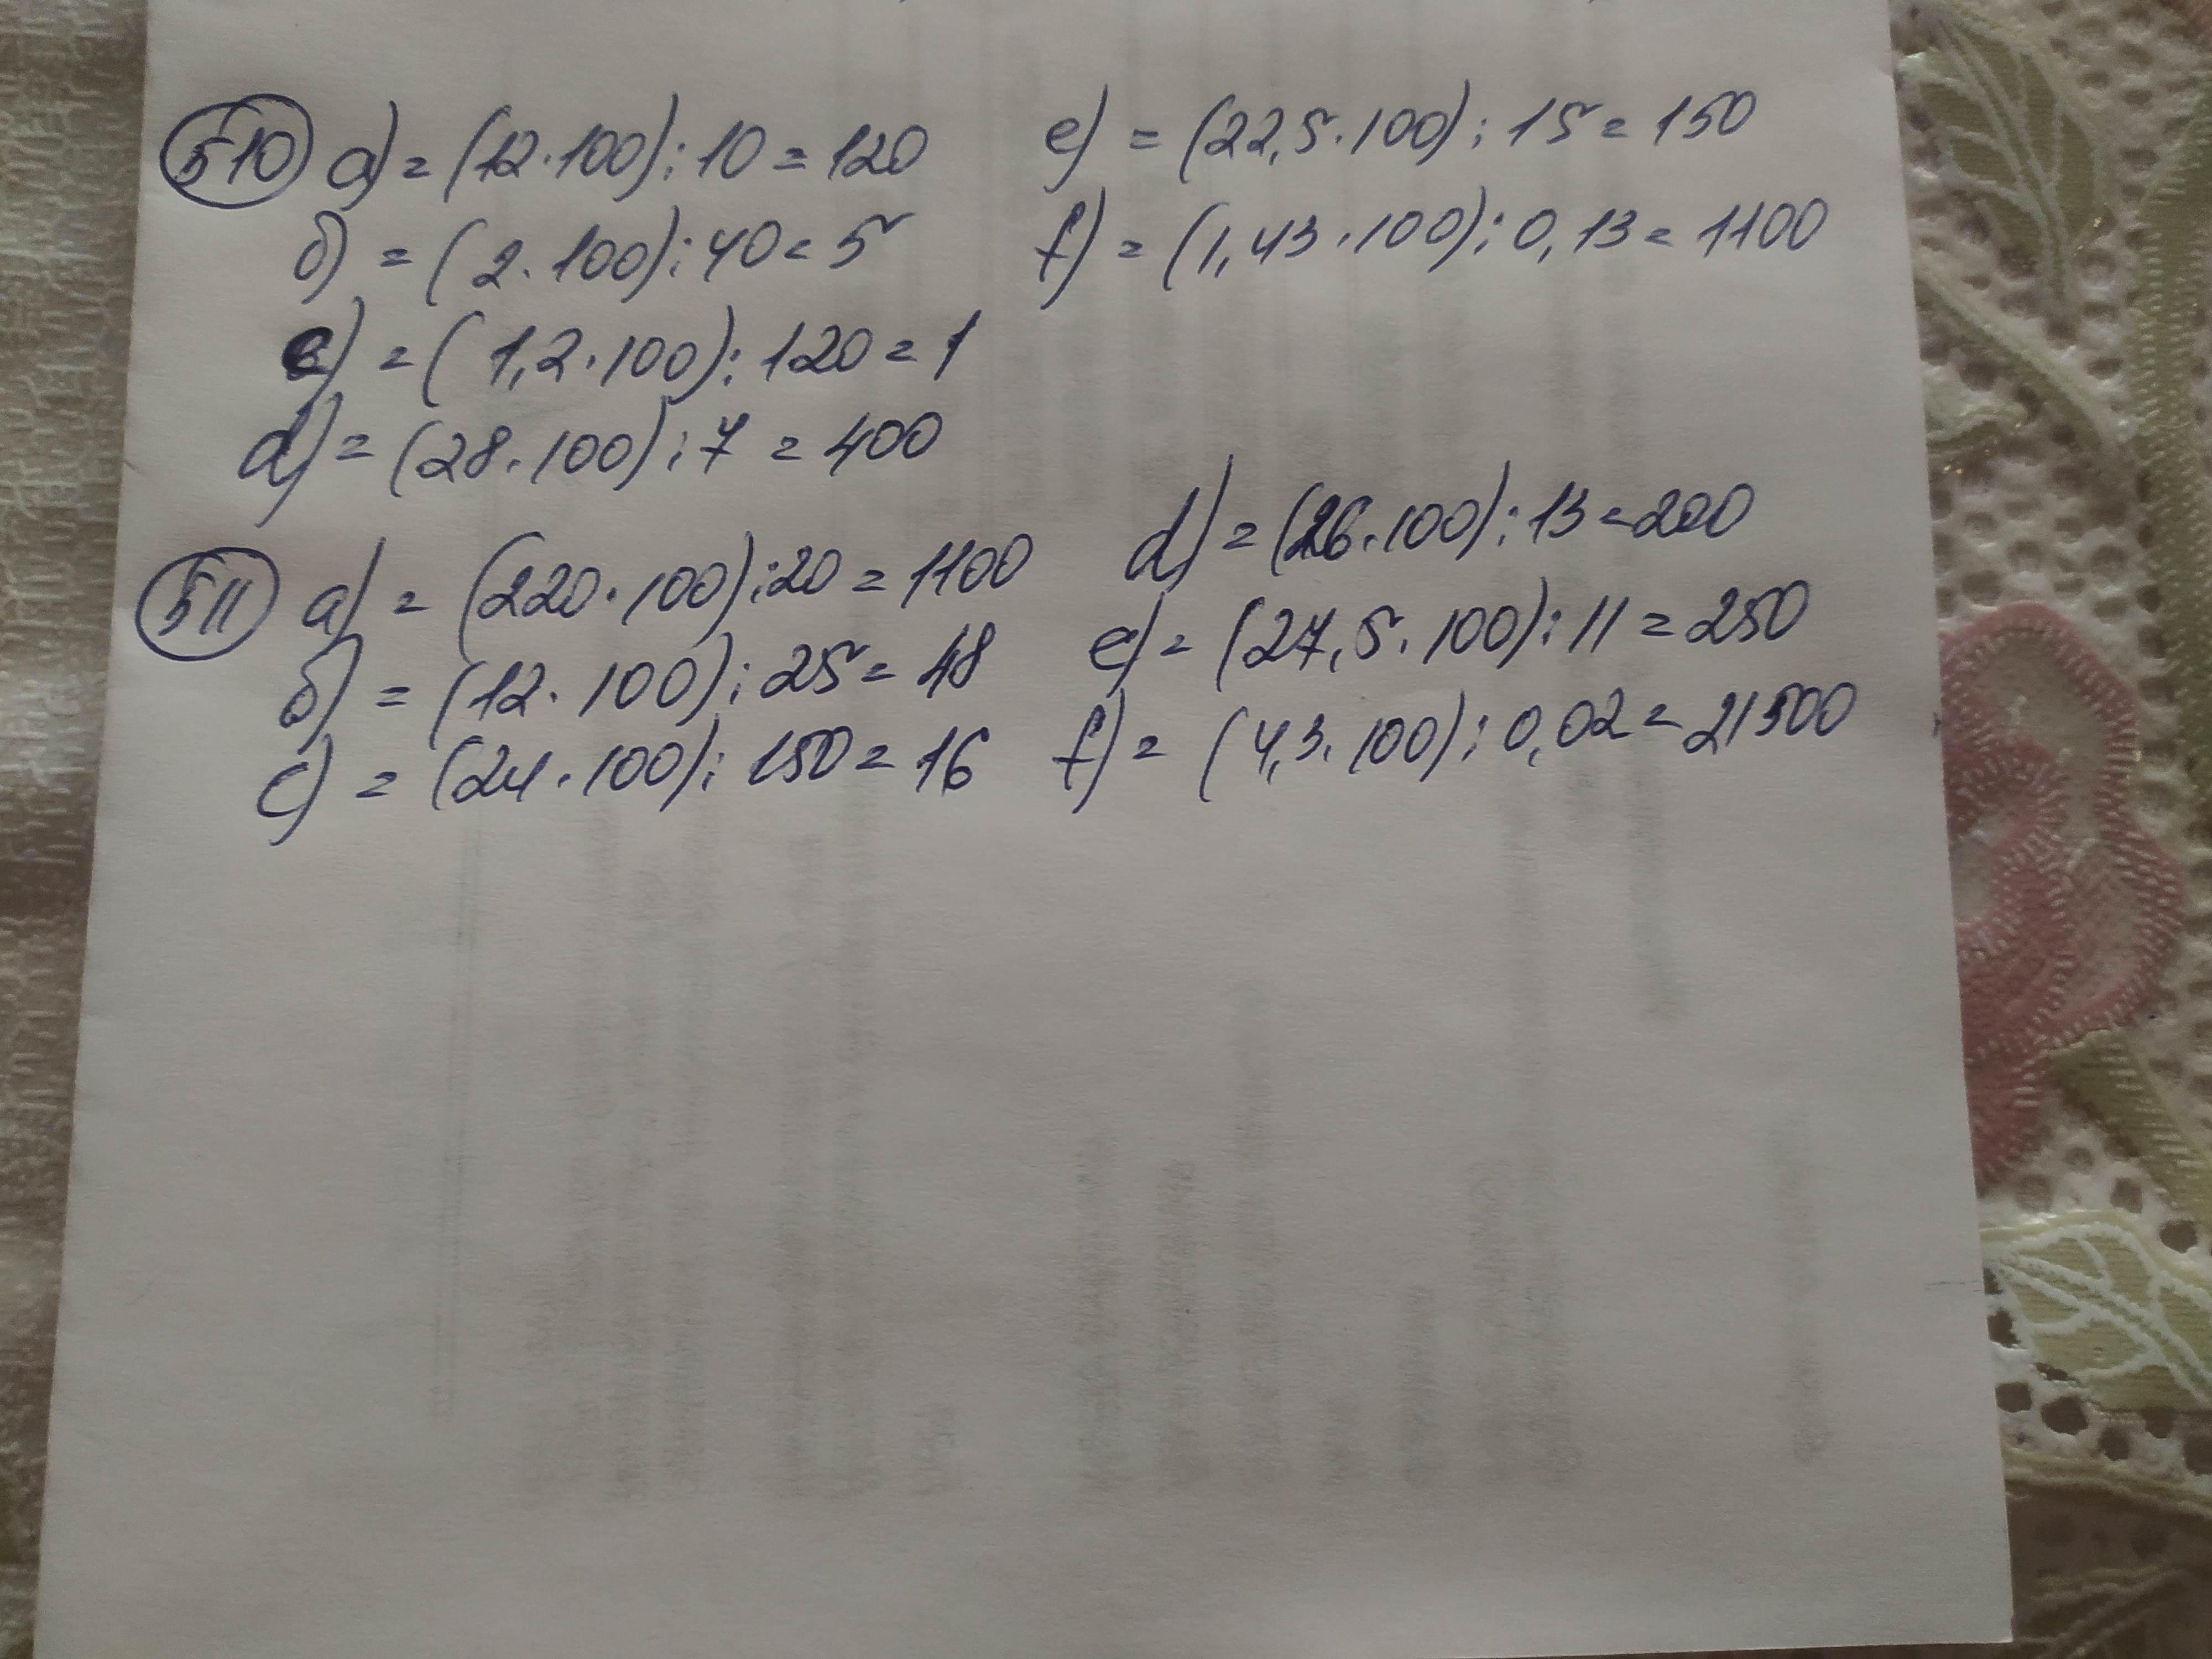 510 a) = (12·100):10 = 120
б) = (2·100):40 = 5
c) = (1,2·100):120 = 1
d) = (28·100):7 = 400
e) = (22,5·100):15 = 150
f) = (1,43·100):0,13 = 1100
511 a) = (220·100):20 = 1100
б) = (12·100):25 = 48
c) = (24·100):150 = 16
d) = (26·100):13 = 200
e) = (27,5·100):11 = 250
f) = (4,3·100):0,02 = 21500